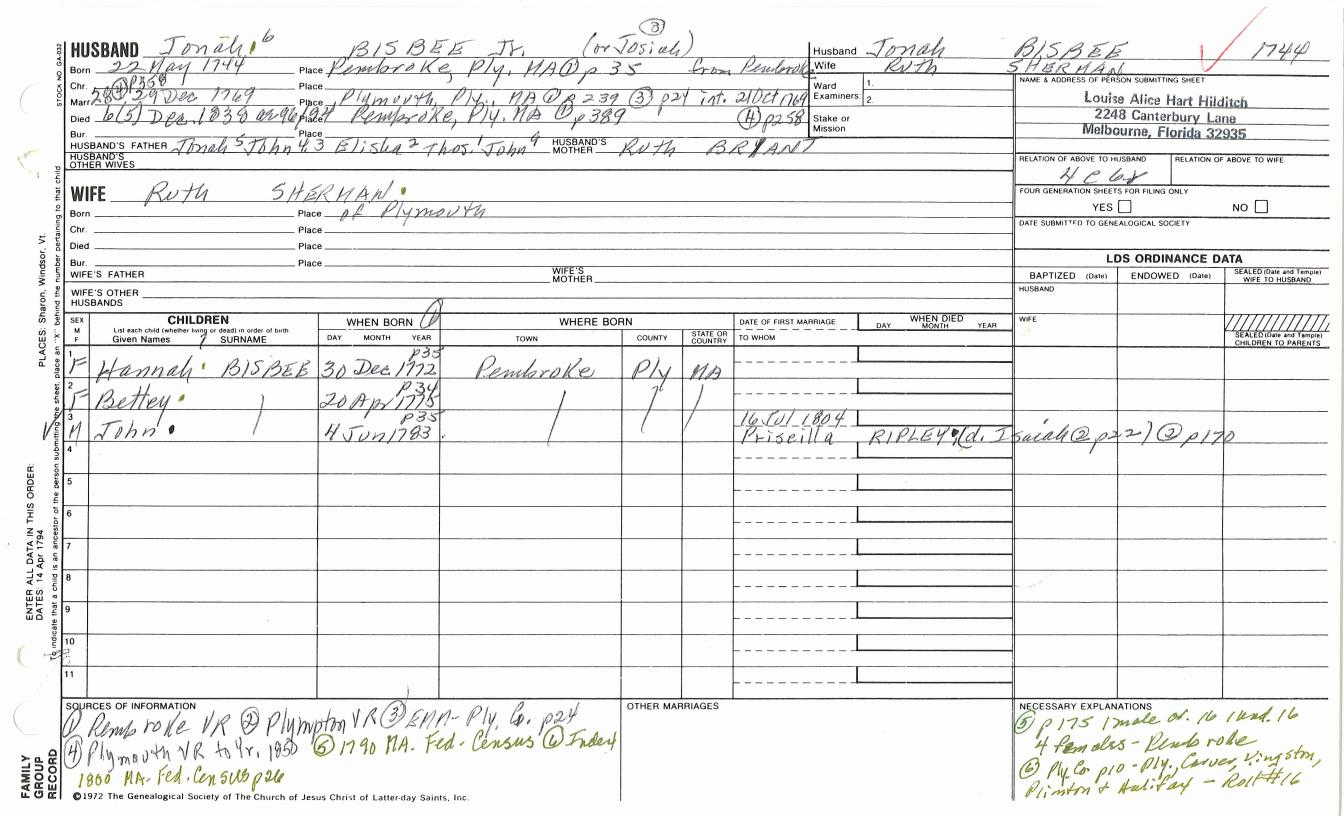 ③
HUSBAND Jonah 6 BISBEE Jr. (or Josiah)
Born 22 May 1744 Place Pembroke, Ply. MA ① p 35 from Pembroke
④ p258
Chr. Place
Marr. 28 29 Dec 1769 Place Plymouth, Ply., MA ② p239 ③ p24 int. 21 Oct 1769
Died 6(5) Dec. 1838 Place Pembroke, Ply. MA ① p389 ④ p258
Bur. Place
HUSBAND'S FATHER Jonah 5 John 4,3 Elisha 2 Thos. 1 John HUSBAND'S MOTHER Ruth BRYANT
HUSBAND'S OTHER WIVES
WIFE Ruth SHERMAN
Born Place of Plymouth
Chr. Place
Died Place
Bur. Place
WIFE'S FATHER WIFE'S MOTHER
WIFE'S OTHER HUSBANDS
Husband Jonah BISBEE 1744
Wife Ruth SHERMAN
Ward Examiners: 1. 2.
Stake or Mission
NAME & ADDRESS OF PERSON SUBMITTING SHEET
Louise Alice Hart Hilditch
2248 Canterbury Lane
Melbourne, Florida 32935
RELATION OF ABOVE TO HUSBAND RELATION OF ABOVE TO WIFE
4 c 6r
FOUR GENERATION SHEETS FOR FILING ONLY
YES NO
DATE SUBMITTED TO GENEALOGICAL SOCIETY
LDS ORDINANCE DATA
BAPTIZED (Date) ENDOWED (Date) SEALED (Date and Temple) WIFE TO HUSBAND
HUSBAND
WIFE
SEALED (Date and Temple) CHILDREN TO PARENTS
SEX M F
CHILDREN
List each child (whether living or dead) in order of birth
Given Names 7 SURNAME
WHEN BORN ①
DAY MONTH YEAR
WHERE BORN
TOWN COUNTY STATE OR COUNTRY
DATE OF FIRST MARRIAGE
TO WHOM
WHEN DIED
DAY MONTH YEAR
p35
1 F Hannah BISBEE 30 Dec 1772 Pembroke Ply MA
p34
2 F Bettey 20 Apr 1775
p35 16 Jul 1804
3 M John 4 Jun 1783 Priscilla RIPLEY (d. Isaiah ② p22) ② p170
4
5
6
7
8
9
10
11
SOURCES OF INFORMATION
① Pembroke VR ② Plympton VR ③ EMM- Ply. Co. p24
④ Plymouth VR to Yr. 1850 ⑤ 1790 MA. Fed. Census ⑥ Index
1800 MA. Fed. Census p26
OTHER MARRIAGES
NECESSARY EXPLANATIONS
⑤ p175 1 male ov. 16 1 und. 16
4 females - Pembroke
⑥ Ply Co p10 - Ply., Carver, Kingston,
Plimton & Halifax - Roll #16
©1972 The Genealogical Society of The Church of Jesus Christ of Latter-day Saints, Inc.
STOCK NO. GA-032
To indicate that a child is an ancestor of the person submitting the sheet, place an "X" behind the number pertaining to that child
PLACES: Sharon, Windsor, Vt.
ENTER ALL DATA IN THIS ORDER:
DATES: 14 Apr 1794
FAMILY
GROUP
RECORD